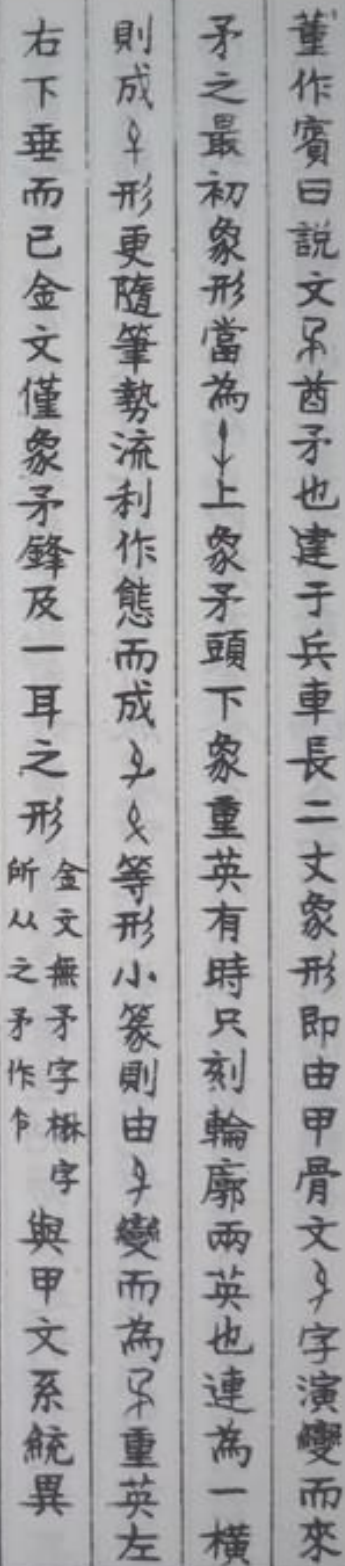 董作賓曰說文矛酋矛也建于兵車長二丈象形即由甲骨文字演變而來
矛之最初象形當為上象矛頭下象重英有時只刻輪廓兩英也連為一橫
則成形更隨筆勢流利作態而成等形小篆則由變而為重英左
右下垂而已金文僅象矛鋒及一耳之形
金文無矛字楙字
所从之矛作
與甲文系統異